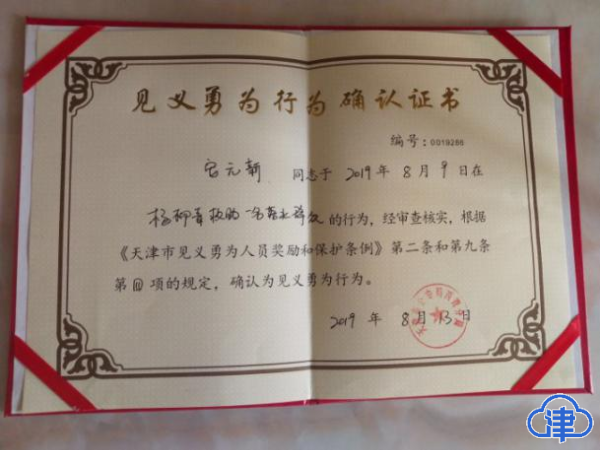 见义勇为行为确认证书
编号：0019286
宫元新 同志于 2019 年 8 月 9 日在
杨柳青救助一名落水群众的行为，经审查核实，根据
《天津市见义勇为人员奖励和保护条例》第二条和第九条
第四项的规定，确认为见义勇为行为。
2019 年 8 月 13 日
津